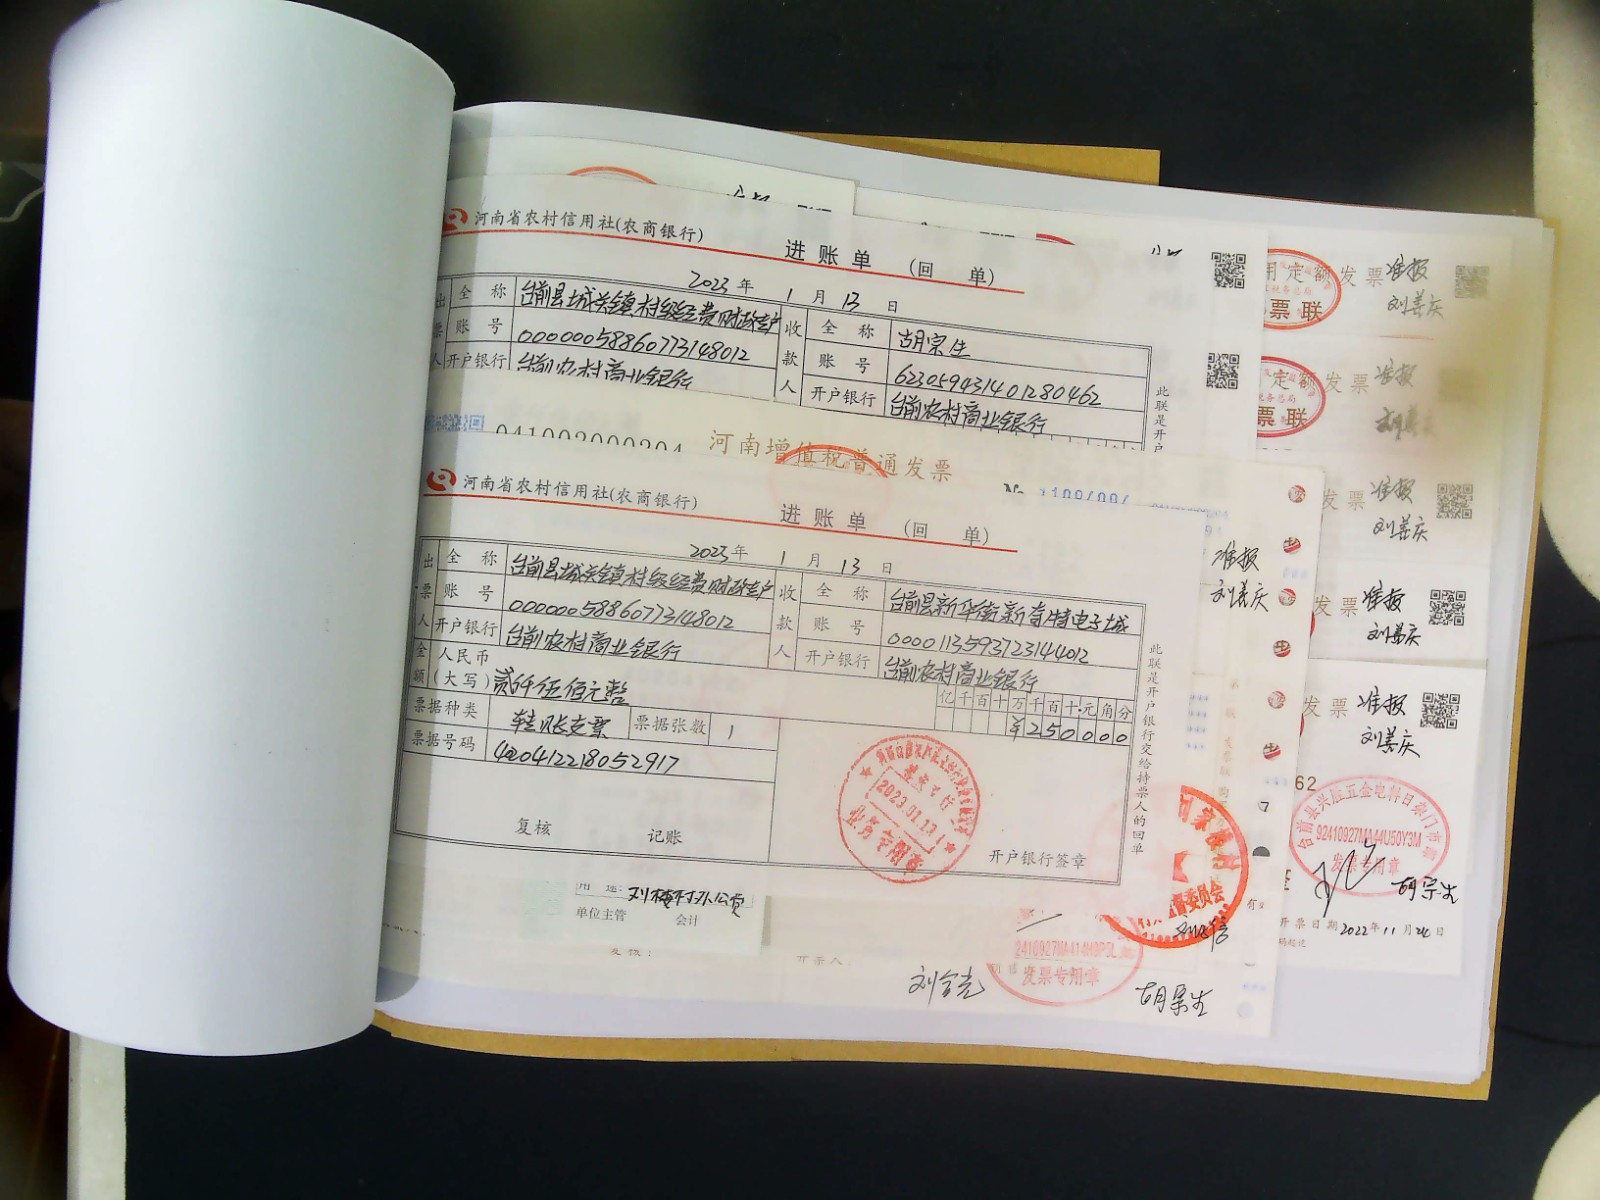 河南省农村信用社(农商银行)
进账单 (回 单)
2023年 1月 13日
全称 台前县城关镇村级经费财政专户
账号 00000058860773148012
开户银行 台前农村商业银行
收款人
全称 胡宗生
账号 623059431401280462
开户银行 台前农村商业银行
此联是开户
041002000204
河南增值税普通发票
河南省农村信用社(农商银行)
进账单 (回 单)
2023年 1月 13日
出票人
全称 台前县城关镇村级经费财政专户
账号 00000058860773148012
开户银行 台前农村商业银行
收款人
全称 台前县新华街新奇特电子城
账号 0000113593723144012
开户银行 台前农村商业银行
金额 人民币(大写) 贰仟伍佰元整
亿千百十万千百十元角分
¥250000
票据种类 转账支票 票据张数 1
票据号码 4020412218052917
复核 记账
2023.01.13
业务专用章
开户银行签章
此联是开户银行交给持票人的回单
用途: 刘楼村办公费
单位主管 会计
复核:
开票人:
2410927MA414H9P5L
发票专用章
监督委员会
刘合光
胡宗生
准报
刘美庆
用定额发票
票联
准报
刘美庆
定额发票
票联
准报
刘美庆
发票
准报
刘美庆
发票
准报
刘美庆
发票
准报
刘美庆
62
台前县兴胜五金电料日杂门市部
92410927MA44U50Y3M
发票专用章
胡宗生
开票日期 2022年 11月 24日